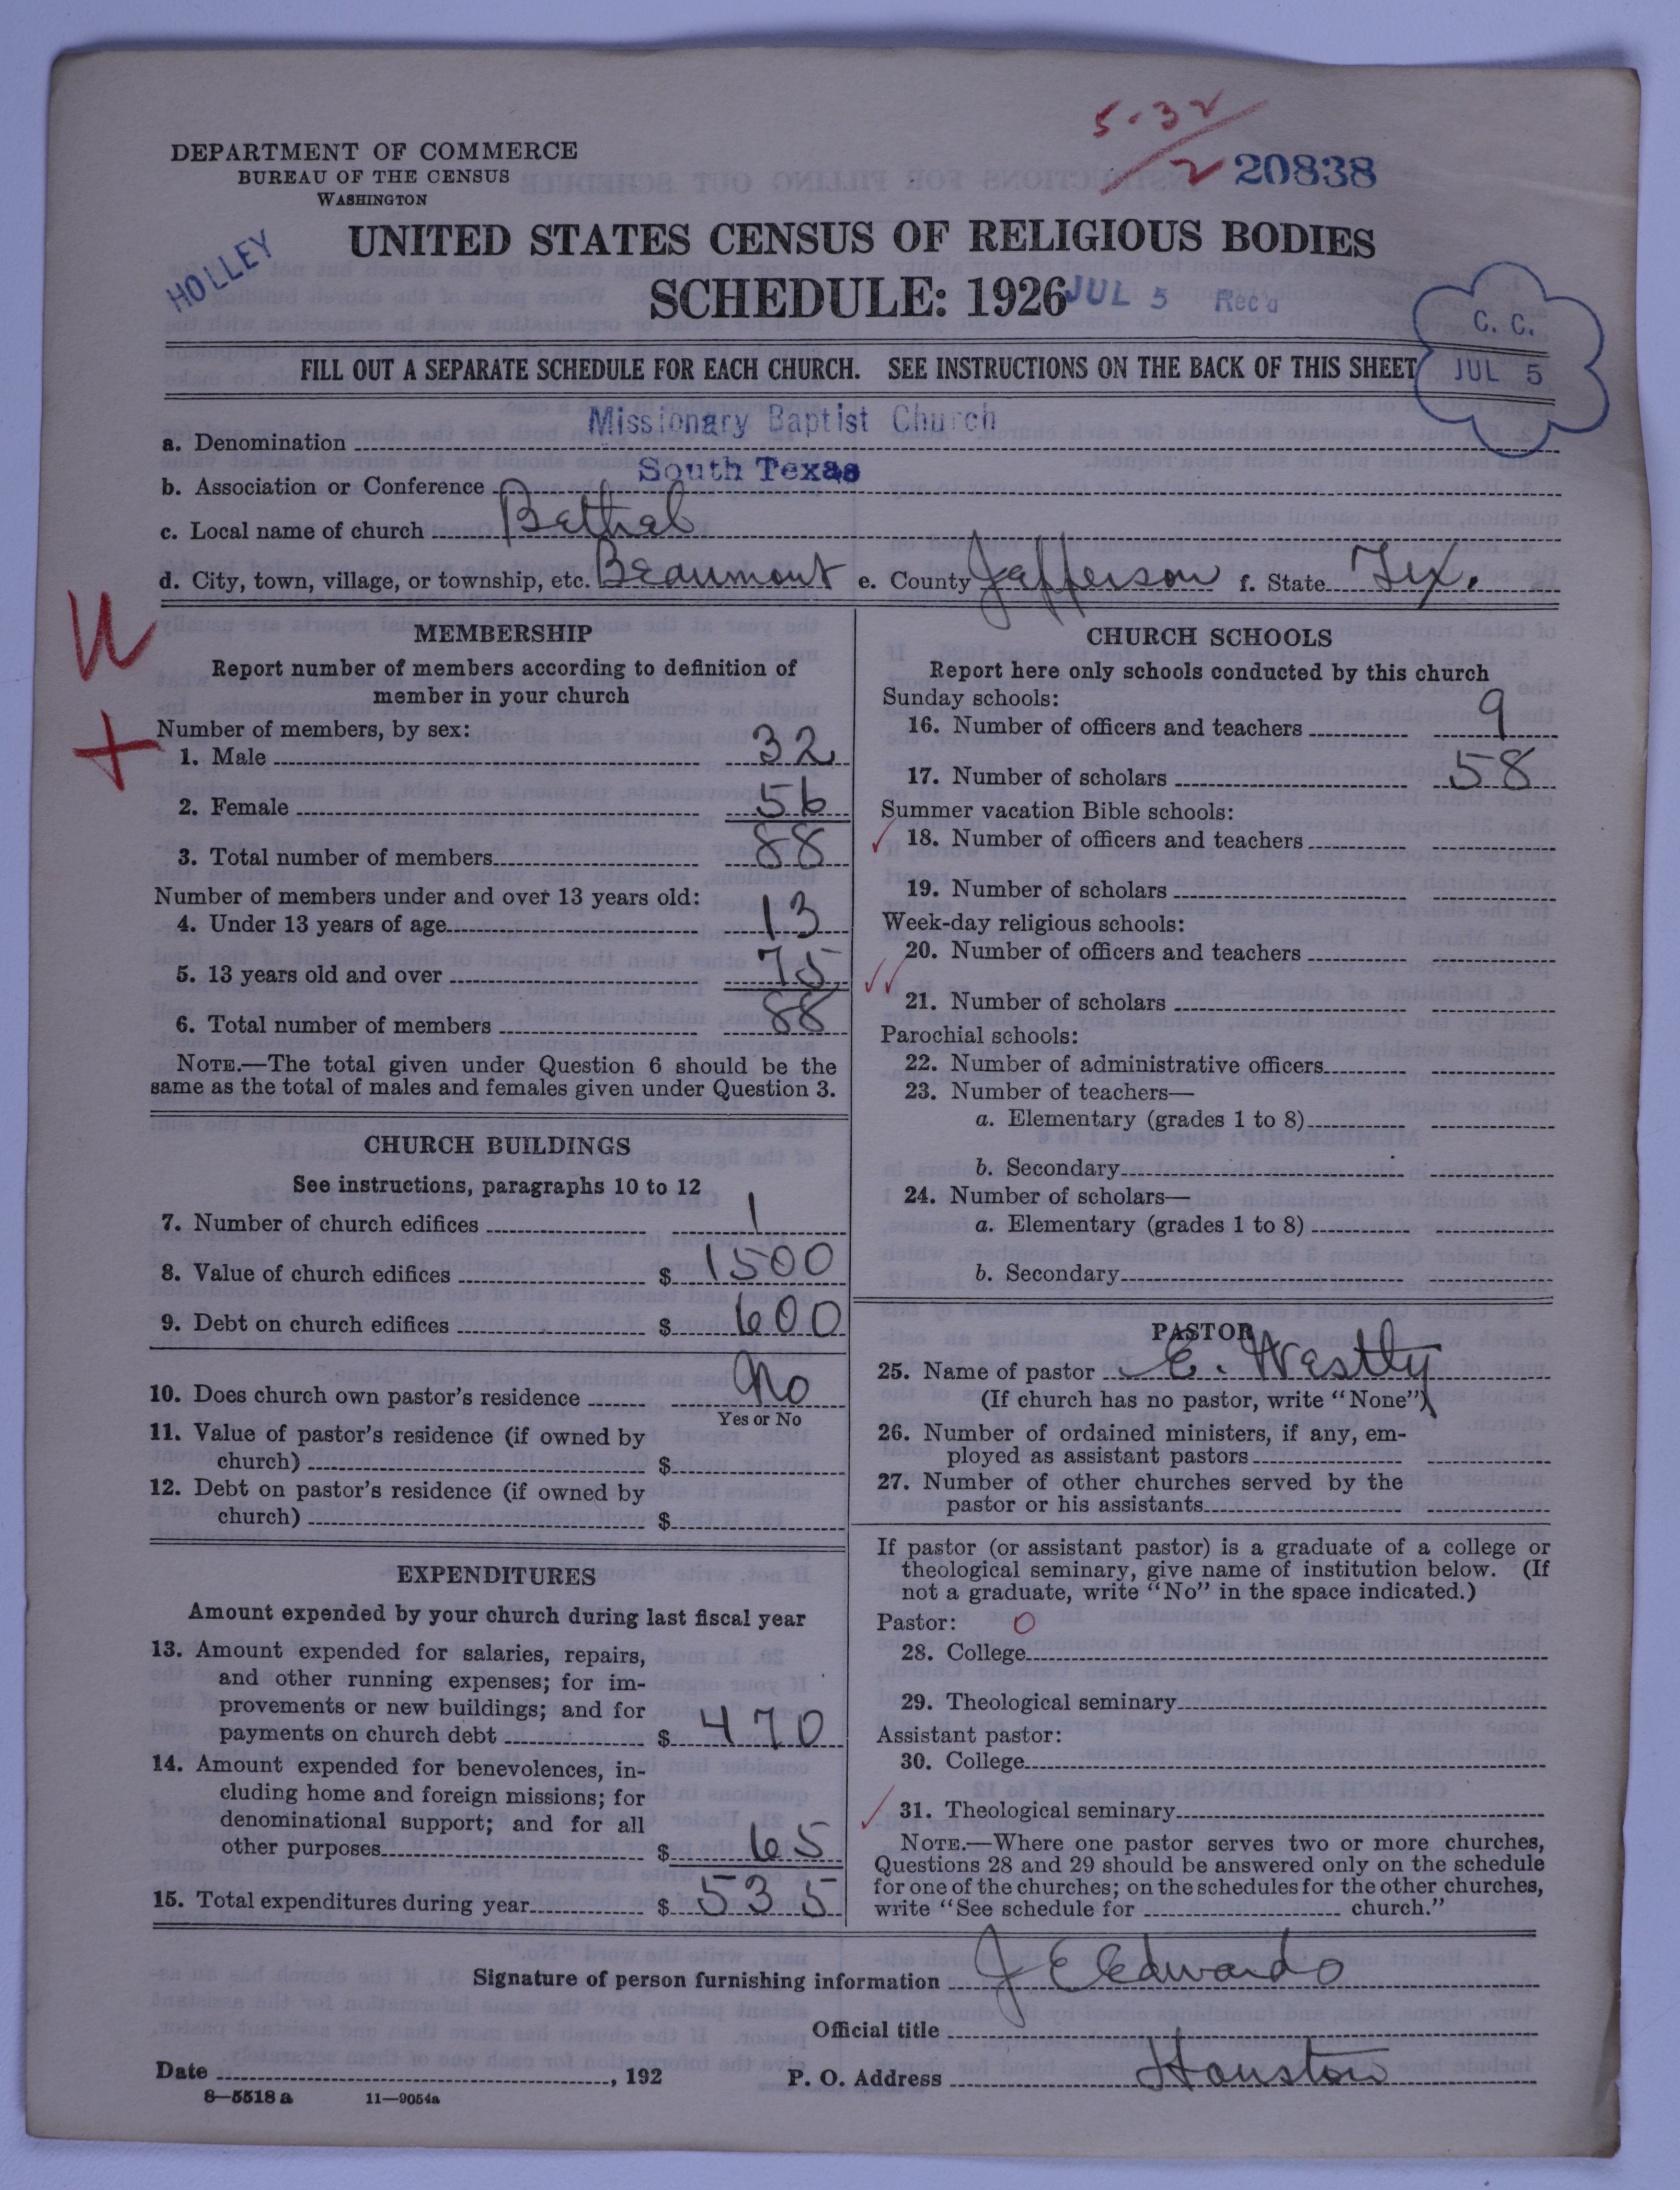 5-32
2 20838
DEPARTMENT OF COMMERCE
BUREAU OF THE CENSUS
WASHINGTON
HOLLEY
UNITED STATES CENSUS OF RELIGIOUS BODIES
SCHEDULE: 1926
JUL 5 Rec'd
C. C.
JUL 5
FILL OUT A SEPARATE SCHEDULE FOR EACH CHURCH. SEE INSTRUCTIONS ON THE BACK OF THIS SHEET
a. Denomination Missionary Baptist Church
b. Association or Conference South Texas
c. Local name of church Bethel
d. City, town, village, or township, etc. Beaumont e. County Jefferson f. State Tex.
MEMBERSHIP
Report number of members according to definition of
member in your church
Number of members, by sex:
1. Male 32
2. Female 56
3. Total number of members 88
Number of members under and over 13 years old:
4. Under 13 years of age 13
5. 13 years old and over 75
6. Total number of members 88
NOTE.—The total given under Question 6 should be the
same as the total of males and females given under Question 3.
CHURCH BUILDINGS
See instructions, paragraphs 10 to 12
7. Number of church edifices 1
8. Value of church edifices $ 1500
9. Debt on church edifices $ 600
10. Does church own pastor's residence No
Yes or No
11. Value of pastor's residence (if owned by
church) $
12. Debt on pastor's residence (if owned by
church) $
EXPENDITURES
Amount expended by your church during last fiscal year
13. Amount expended for salaries, repairs,
and other running expenses; for im-
provements or new buildings; and for
payments on church debt $ 470
14. Amount expended for benevolences, in-
cluding home and foreign missions; for
denominational support; and for all
other purposes $ 65
15. Total expenditures during year $ 535
CHURCH SCHOOLS
Report here only schools conducted by this church
Sunday schools:
16. Number of officers and teachers 9
17. Number of scholars 58
Summer vacation Bible schools:
18. Number of officers and teachers
19. Number of scholars
Week-day religious schools:
20. Number of officers and teachers
21. Number of scholars
Parochial schools:
22. Number of administrative officers
23. Number of teachers—
a. Elementary (grades 1 to 8)
b. Secondary
24. Number of scholars—
a. Elementary (grades 1 to 8)
b. Secondary
PASTOR
25. Name of pastor E. Westly
(If church has no pastor, write "None")
26. Number of ordained ministers, if any, em-
ployed as assistant pastors
27. Number of other churches served by the
pastor or his assistants
If pastor (or assistant pastor) is a graduate of a college or
theological seminary, give name of institution below. (If
not a graduate, write "No" in the space indicated.)
Pastor: O
28. College
29. Theological seminary
Assistant pastor:
30. College
31. Theological seminary
NOTE.—Where one pastor serves two or more churches,
Questions 28 and 29 should be answered only on the schedule
for one of the churches; on the schedules for the other churches,
write "See schedule for church."
Signature of person furnishing information J E Edwards
Official title
Date , 192 P. O. Address Houston
8—5518 a 11—9054a